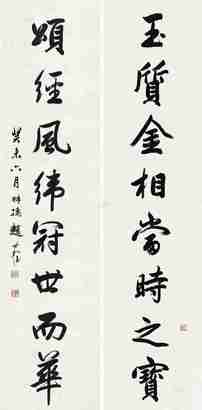 玉質金相當時之寶
頌經風緯冠世而華
癸未六月 趙